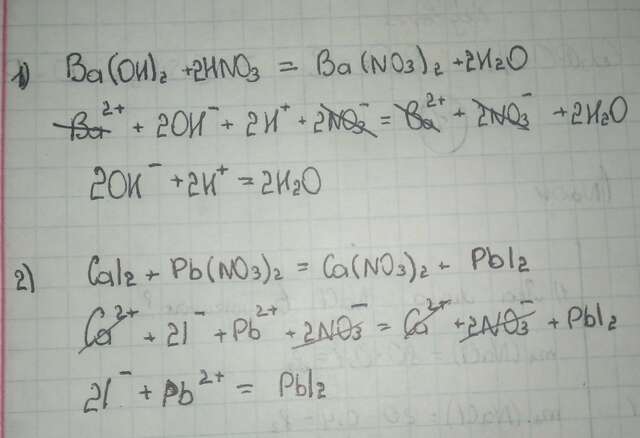 1) Ba(OH)₂ + 2HNO₃ = Ba(NO₃)₂ + 2H₂O
Ba²⁺ + 2OH⁻ + 2H⁺ + 2NO₃⁻ = Ba²⁺ + 2NO₃⁻ + 2H₂O
2OH⁻ + 2H⁺ = 2H₂O
2) CaI₂ + Pb(NO₃)₂ = Ca(NO₃)₂ + PbI₂
Ca²⁺ + 2I⁻ + Pb²⁺ + 2NO₃⁻ = Ca²⁺ + 2NO₃⁻ + PbI₂
2I⁻ + Pb²⁺ = PbI₂